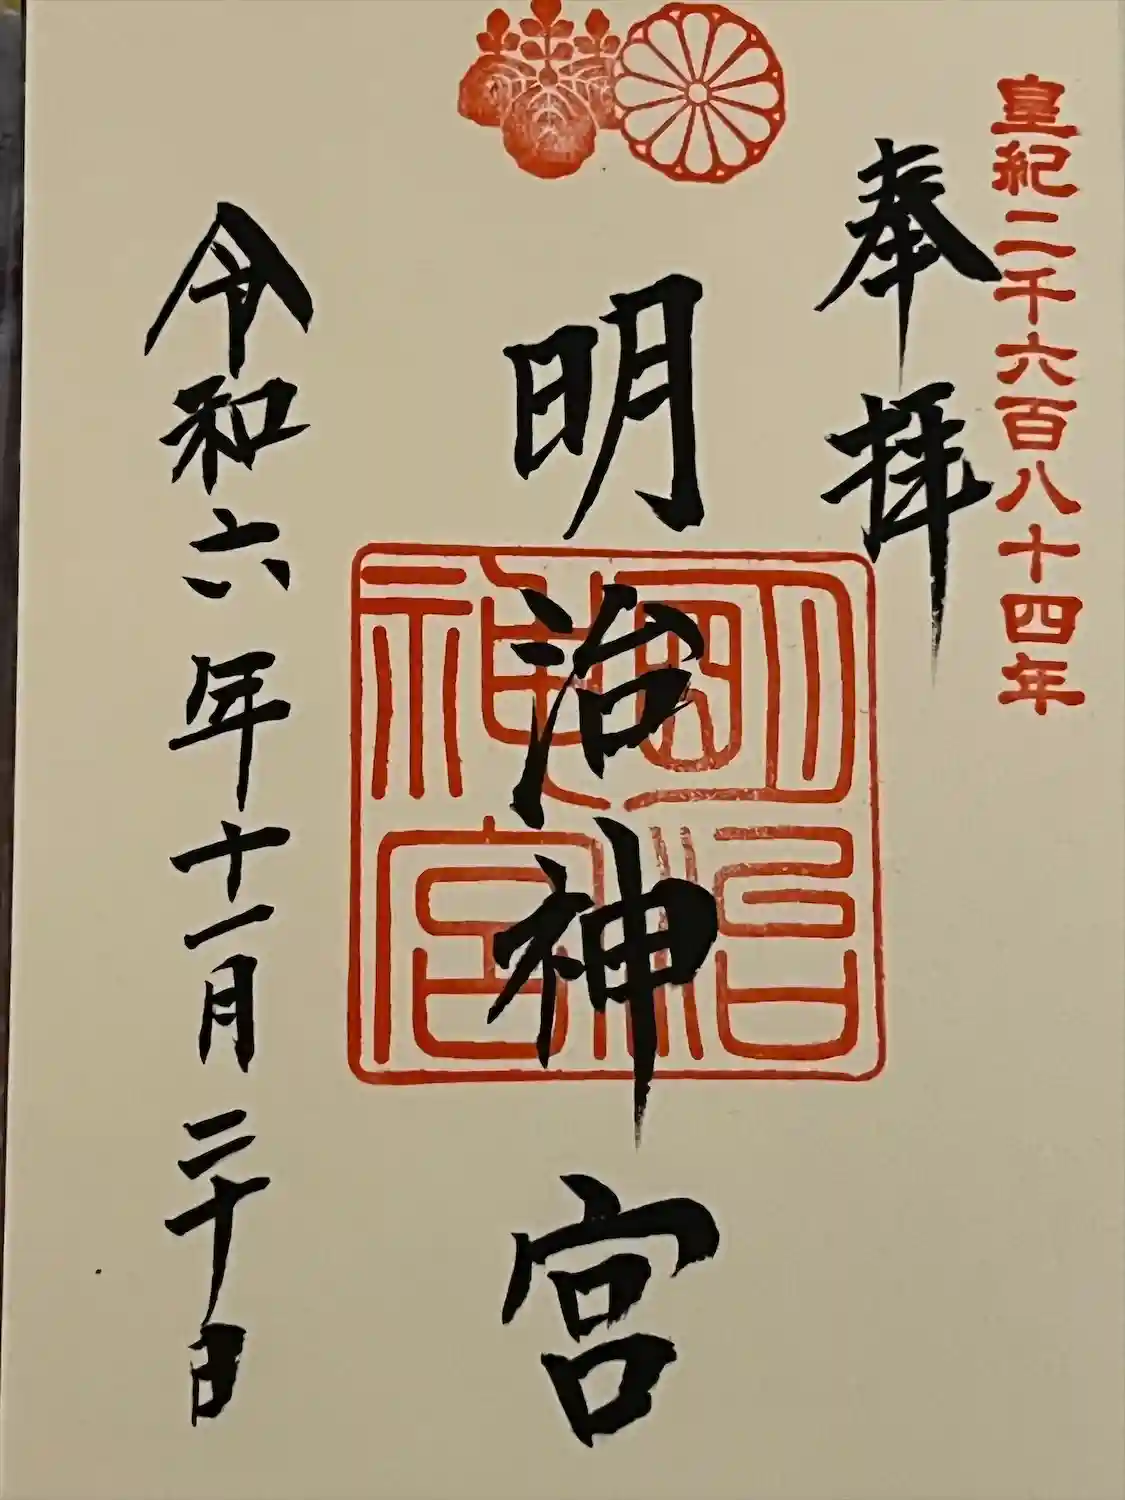 皇紀二千六百八十四年
奉拝
明治神宮
明治神宮
令和六年十一月二十日